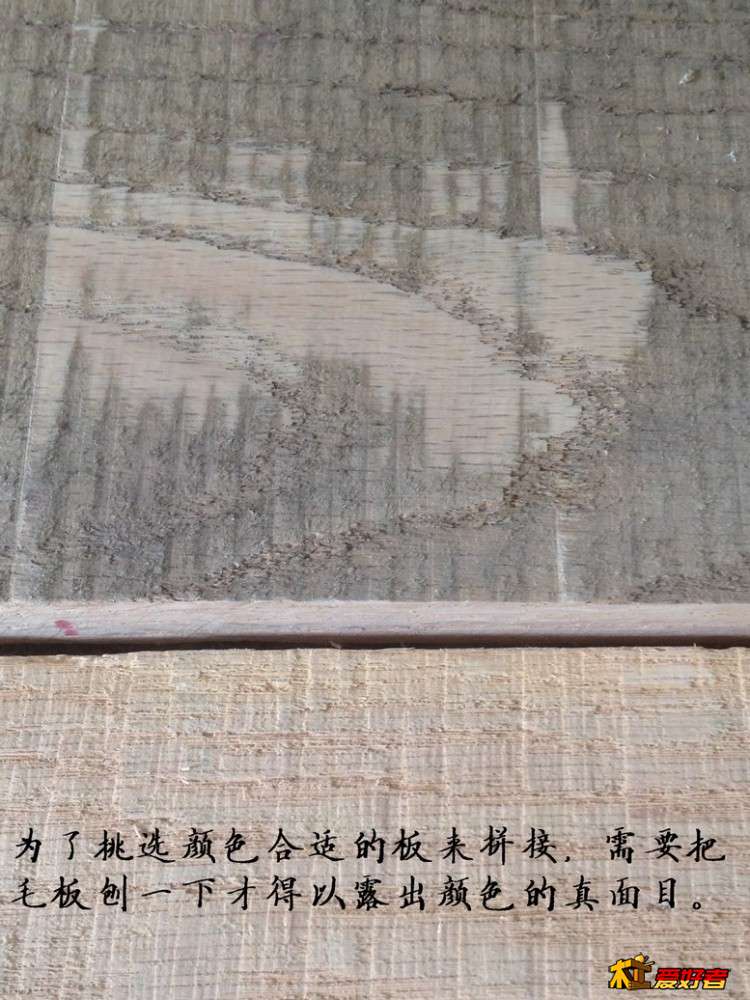 为了挑选颜色合适的板来拼接，需要把
毛板刨一下才得以露出颜色的真面目。
木工爱好者